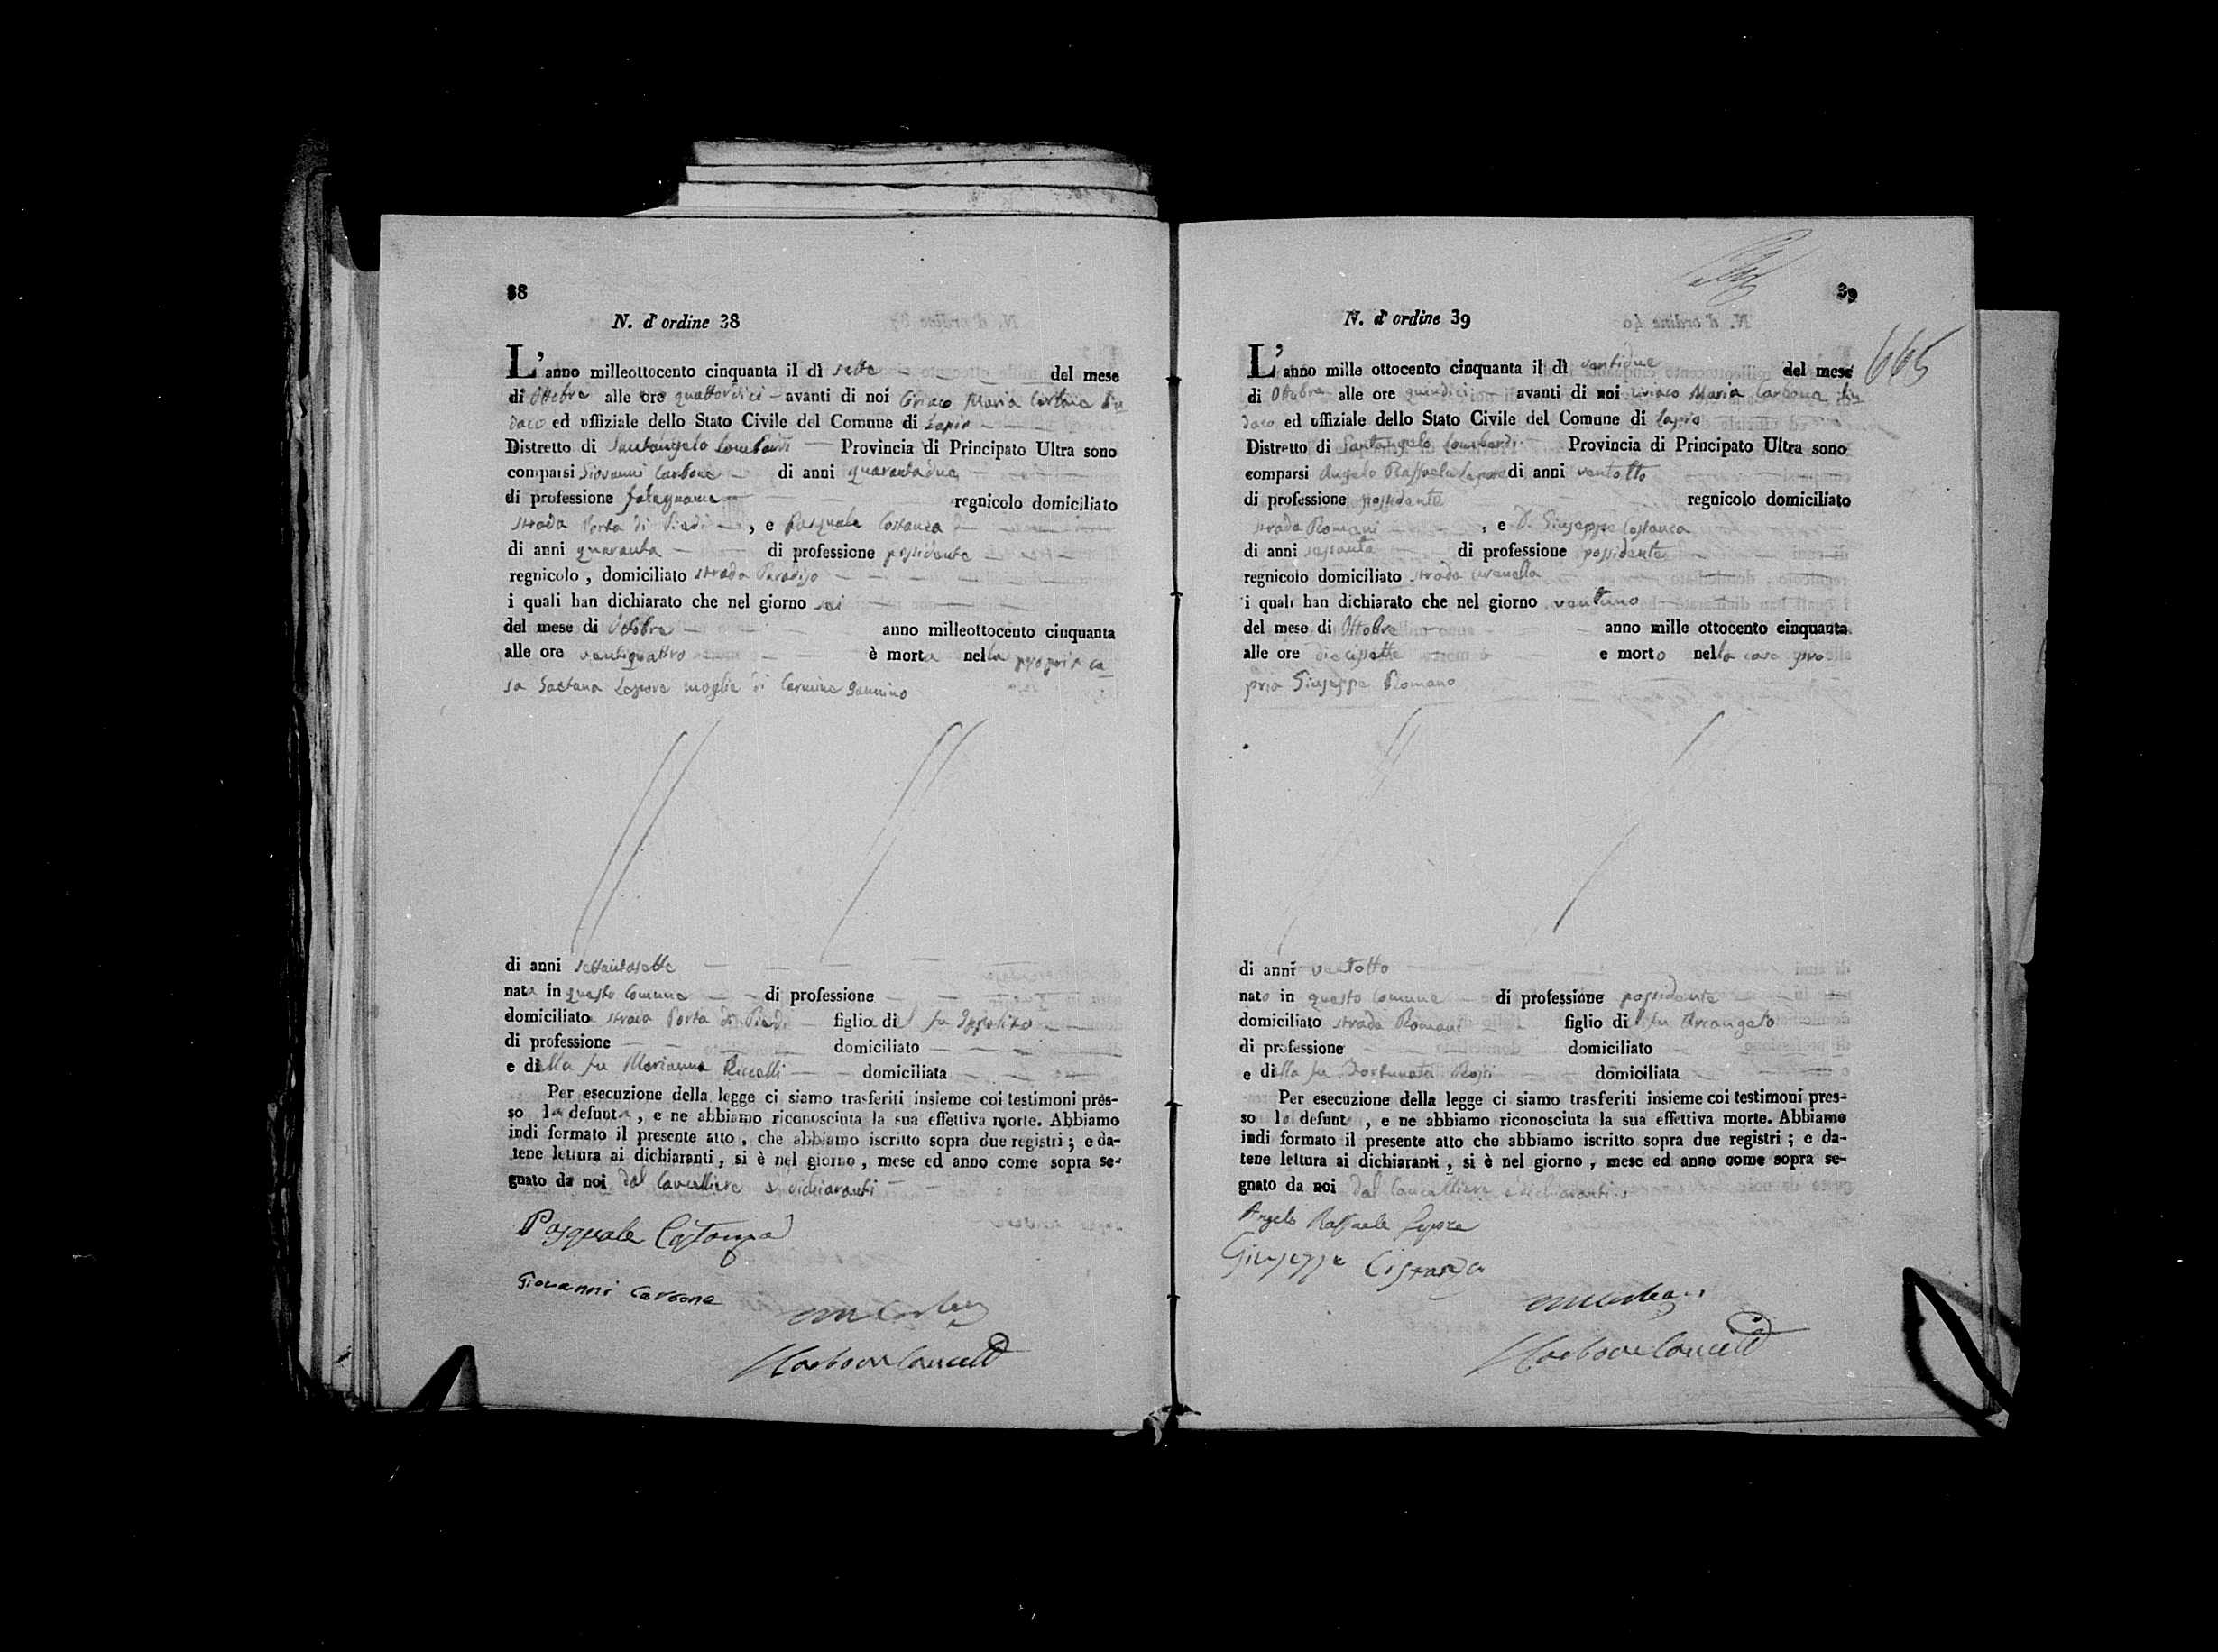 38
N. d' ordine 38
L' anno milleottocento cinquanta il dì sette del mese
di Ottobre alle ore quattordici avanti di noi Ciriaco Maria Carbone Sin
daco ed uffiziale dello Stato Civile del Comune di Lapio
Distretto di Santangelo Lombardi Provincia di Principato Ultra sono
comparsi Giovanni Carbone di anni quarantadue
di professione falegname regnicolo domiciliato
strada Porta di Piedi , e Pasquale Costanza
di anni quaranta di professione possidente
regnicolo , domiciliato strada Paradiso
i quali han dichiarato che nel giorno sei
del mese di Ottobre anno milleottocento cinquanta
alle ore ventiquattro è morta nella propria ca
sa Gaetana Lepore moglie di Carmine
di anni settantasette
nata in questo Comune di professione
domiciliata strada Porta di Piedi figlia del fu Ippolito
di professione domiciliato
e della fu Marianna domiciliata
Per esecuzione della legge ci siamo trasferiti insieme coi testimoni pres-
so la defunta , e ne abbiamo riconosciuta la sua effettiva morte. Abbiamo
indi formato il presente atto , che abbiamo iscritto sopra due registri ; e da-
tene lettura ai dichiaranti , si è nel giorno , mese ed anno come sopra se-
gnato da noi dal Cancelliere e dichiaranti
Pasquale Costanza
Giovanni Carbone
Carbone Cancell
39
665
N. d' ordine 39
L' anno mille ottocento cinquanta il dì ventidue del mese
di Ottobre alle ore quindici avanti di noi Ciriaco Maria Carbone Sin
daco ed uffiziale dello Stato Civile del Comune di Lapio
Distretto di Santangelo Lombardi Provincia di Principato Ultra sono
comparsi Angelo Raffaele Lepore di anni ventotto
di professione possidente regnicolo domiciliato
strada Romani , e D. Giuseppe Costanza
di anni sessanta di professione possidente
regnicolo domiciliato strada
i quali han dichiarato che nel giorno ventuno
del mese di Ottobre anno mille ottocento cinquanta
alle ore diecisette e morto nella casa pro
pria Giuseppe Romano
di anni ventotto
nato in questo Comune di professione possidente
domiciliato strada Romani figlio del fu Arcangelo
di professione domiciliato
e della fu Fortunata domiciliata
Per esecuzione della legge ci siamo trasferiti insieme coi testimoni pres-
so lo defunt , e ne abbiamo riconosciuta la sua effettiva morte. Abbiamo
indi formato il presente atto che abbiamo iscritto sopra due registri ; e da-
tene lettura ai dichiaranti , si è nel giorno , mese ed anno come sopra se-
gnato da noi dal Cancelliere e dichiaranti
Angelo Raffaele Lepore
Giuseppe Costanza
Carbone Cancell